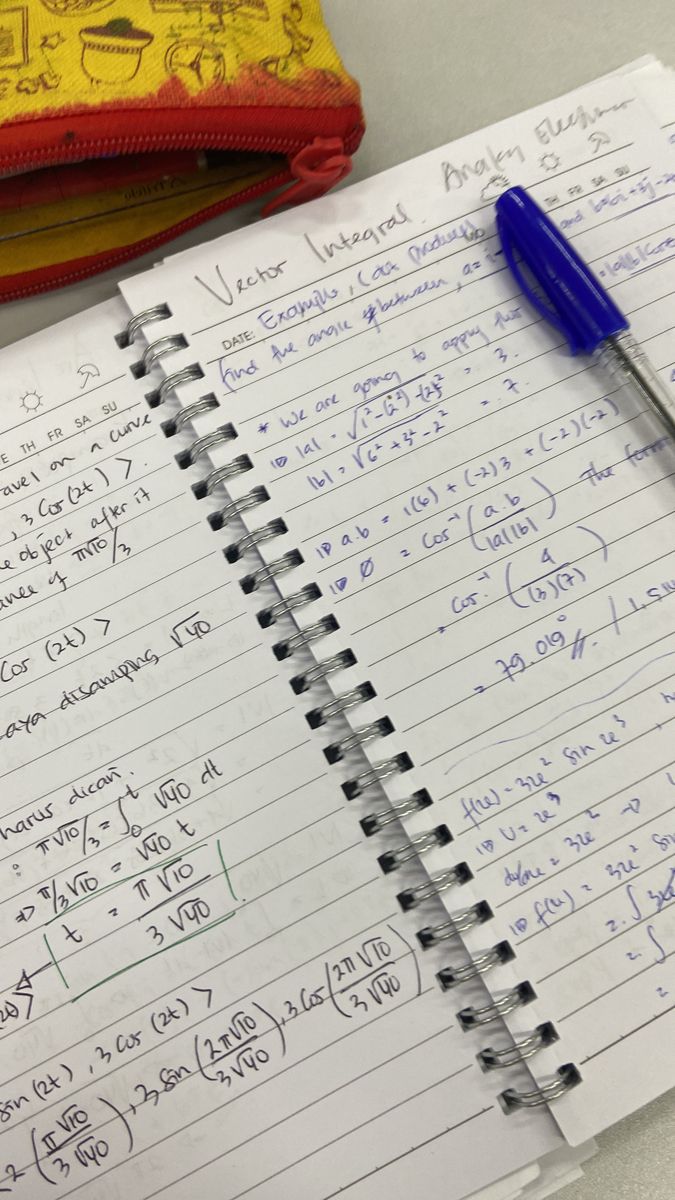 E TH FR SA SU
avel on a curve
, 3 Cos(2t) >.
e object after it
ance of π√10/3
Cos (2t) >
aya disamping √40
harus dicari.
: π√10/3 = ∫₀ᵗ √40 dt
=> π/3 √10 = √40 t
t = π√10 / 3√40
sin (2t), 3 Cos (2t) >
2 (π√10 / 3√40), 3 sin (2π√10 / 3√40), 3 Cos (2π√10 / 3√40)
Vector Integral.
TH FR SA SU
DATE: Example, product
find the angle between, a = i and
* We are going to apply this
|a| = √1²-(2²)+(2)² = 3.
|b| = √6²+3²-2² = 7.
a.b = 1(6) + (-2)3 + (-2)(-2)
Ø = Cos⁻¹ (a.b / |a||b|) The
= Cos⁻¹ (4 / (3)(7))
= 79.019° //. /
f(x) = 3x² sin x³,
U = x³
= 3x² =>
f(x) = 3x² sin
= ∫ 3x
= ∫
=